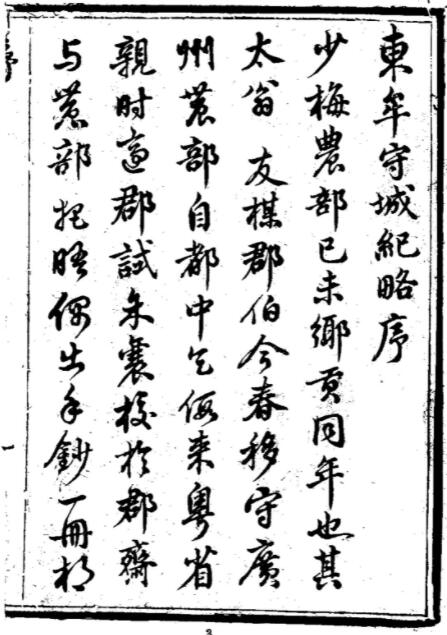 東牟守城紀略序
少梅農部已未鄉貢同年也其
太翁 友楳郡伯今春移守廣
州農部自都中乞假来粤省
親时適郡試朱襄校於郡齋
与農部把晤偶出手鈔一冊相
序